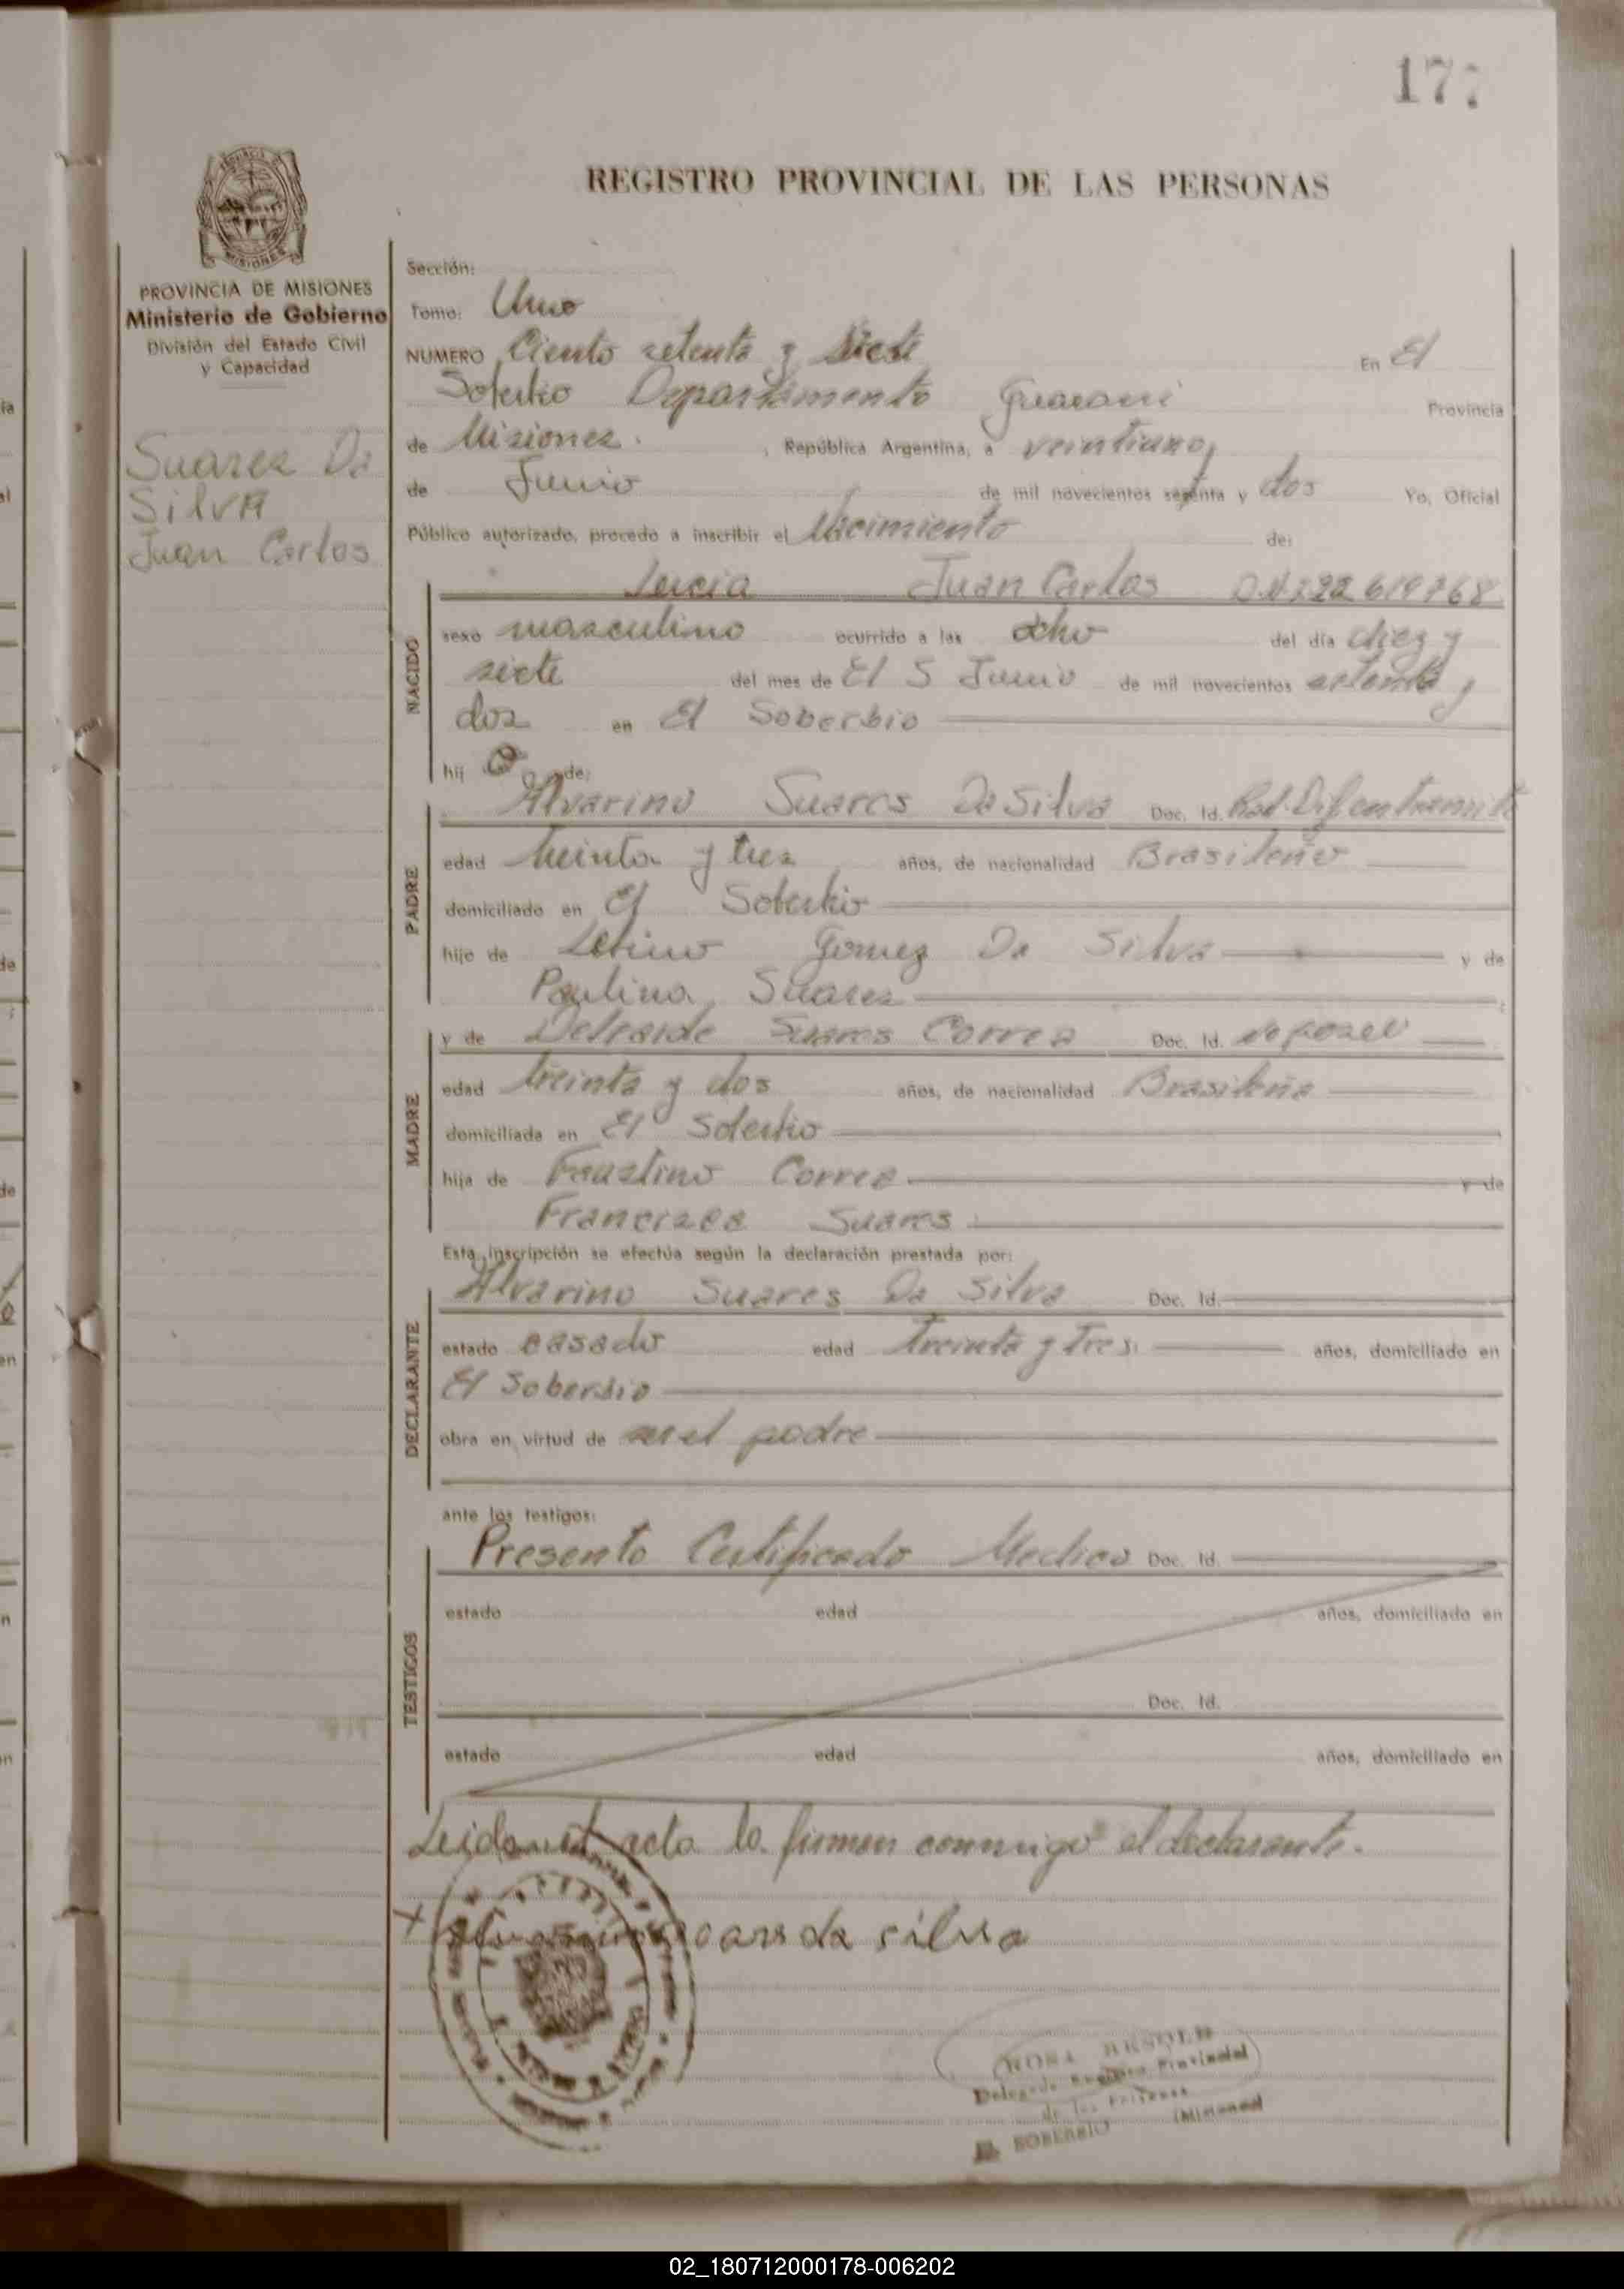 177
REGISTRO PROVINCIAL DE LAS PERSONAS
PROVINCIA DE MISIONES
Ministerio de Gobierno
División del Estado Civil
y Capacidad
Suarez Da
Silva
Juan Carlos
Sección:
Tomo: Uno
NUMERO Ciento setenta y siete En El
Soberbio Departamento Guarani Provincia
de Misiones. , República Argentina, a veintiuno
de Junio de mil novecientos setenta y dos Yo, Oficial
Público autorizado, procedo a inscribir el Nacimiento de:
NACIDO
Juan Carlos
sexo masculino ocurrido a las ocho del día diez y
siete del mes de El S Junio de mil novecientos setenta y
dos en El Soberbio
hijo de:
PADRE
Alvarino Suares Da Silva Doc. Id.
edad treinta y tres años, de nacionalidad Brasileño
domiciliado en El Soberbio
hijo de Gomez Da Silva y de
Paulina Suarez
MADRE
y de Suares Correa Doc. Id. no posee
edad treinta y dos años, de nacionalidad Brasileña
domiciliada en El Soberbio
hija de Faustino Correa y de
Francisca Suares
Esta inscripción se efectúa según la declaración prestada por:
DECLARANTE
Alvarino Suares Da Silva Doc. Id.
estado casado edad treinta y tres años, domiciliado en
El Soberbio
obra en virtud de ser el padre
ante los testigos:
TESTIGOS
Presento Certificado Medico Doc. Id.
estado edad años, domiciliado en
Doc. Id.
estado edad años, domiciliado en
Leida el acta la firman conmigo el declarante.
da silva
Provincial
de las Personas
EL SOBERBIO (Misiones)
02_180712000178-006202